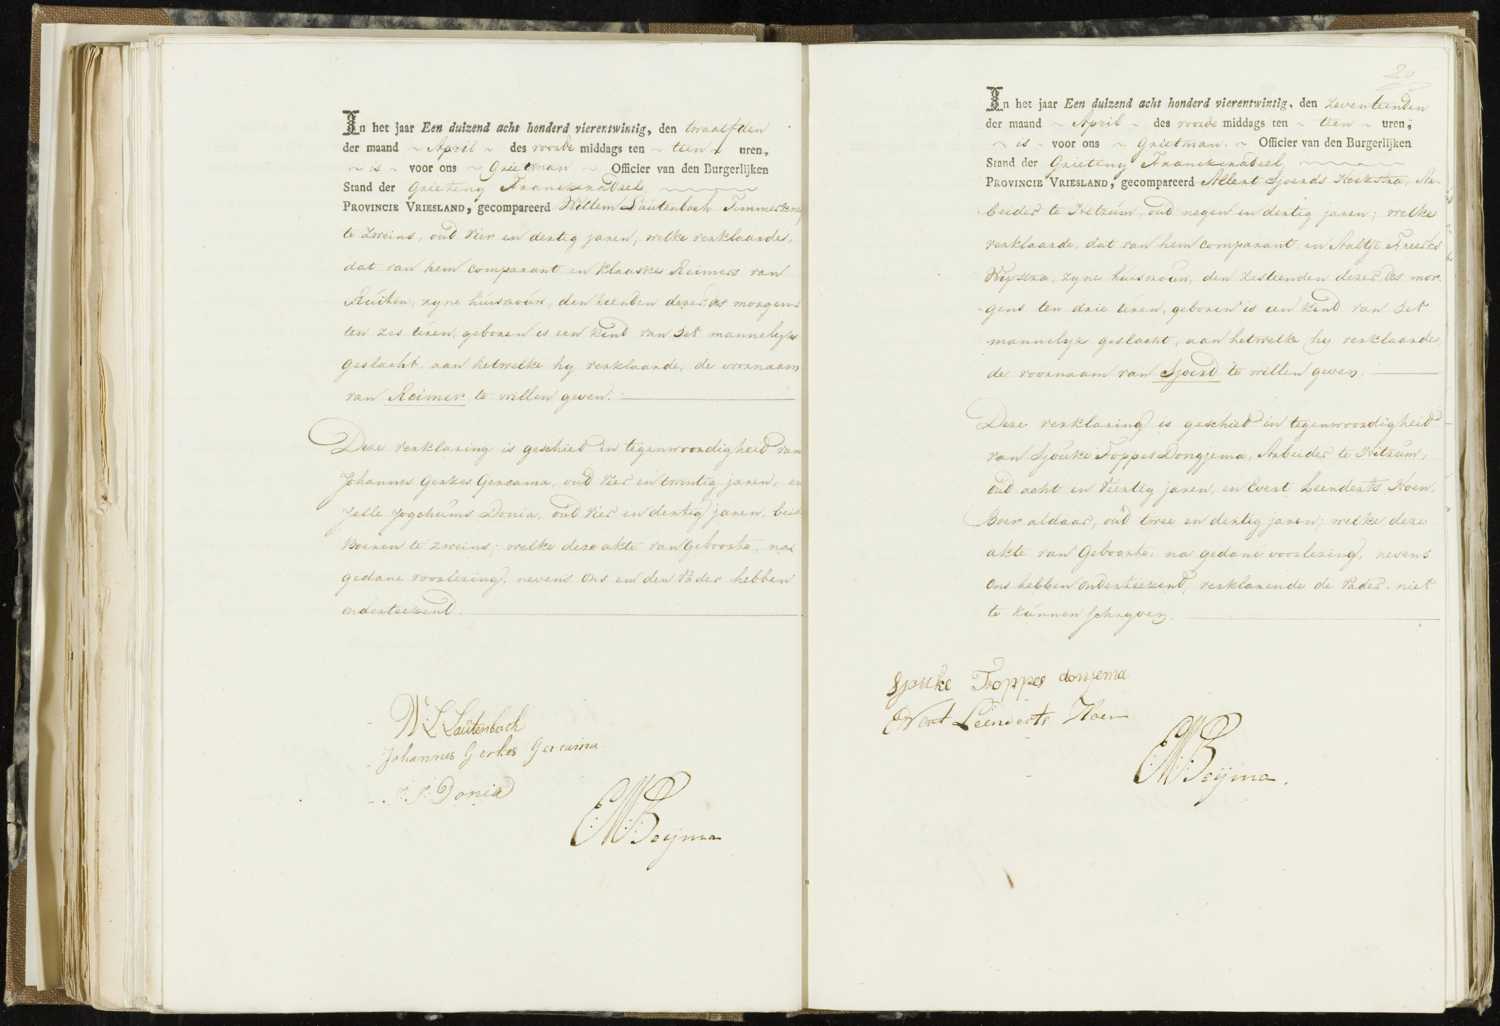 In het jaar Een duizend acht honderd vierentwintig, den twaalfden
der maand April des voorde middags ten tien uren,
is voor ons Grietman Officier van den Burgerlijken
Stand der Grieteny Franekeradeel,
PROVINCIE VRIESLAND, gecompareerd Willem Lautenbach Timmerknegt
te Zweins, oud Vier en dertig jaren, welke verklaarde,
dat van hem comparant en Klaaske Reimers van
Kuiken, zyne huisvrouw, den tienden dezer des morgens
ten zes uren, geboren is een kind van het mannelyk
geslacht, aan hetwelke hy verklaarde, de voornaam
van Reimer te willen geven.
Deze verklaring is geschied in tegenwoordigheid van
Johannes Gerkes Gercama, oud Vier en twintig jaren, en
Jelle Jogchums Donia, oud Vier en dertig jaren, beide
Boeren te Zweins; welke deze akte van Geboorte, na
gedane voorlezing, nevens Ons en den Vader hebben
onderteekend.
W L Lautenbach
Johannes Gerkes Gercama
J. J. Donia
E: M: Beijma
20
In het jaar Een duizend acht honderd vierentwintig, den zeventienden
der maand April des voorde middags ten tien uren,
is voor ons Grietman Officier van den Burgerlijken
Stand der Grieteny Franekeradeel,
PROVINCIE VRIESLAND, gecompareerd Albert Sjoerds Hoekstra, Ar-
beider te Hitzum, oud negen en dertig jaren; welke
verklaarde, dat van hem comparant en Aaltje Freerks
Wypstra, zyne huisvrouw, den zestienden dezer des mor-
gens ten drie uren, geboren is een kind van het
mannelyk geslacht, aan hetwelke hy verklaarde
de voornaam van Sjoerd te willen geven.
Deze verklaring is geschied in tegenwoordigheid
van Sjouke Foppes Dongjema, Arbeider te Hitzum,
oud acht en Veertig jaren, en Evert Leenderts Hoen,
Boer aldaar, oud twee en dertig jaren; welke deze
akte van Geboorte, na gedane voorlezing, nevens
Ons hebben onderteekend, verklarende de Vader niet
te kunnen schryven.
Sjouke Foppes donjema
Evert Leenderts Hoen
E: M: Beijma.